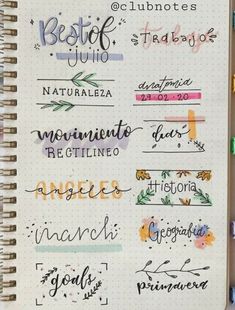 @clubnotes
Best of
Julio
Trabajo
NATURALEZA
anatomia
29-02-20
movimiento
RECTILINEO
dias
ANGELES
angeles
Historia
march
Geografia
goals
primavera